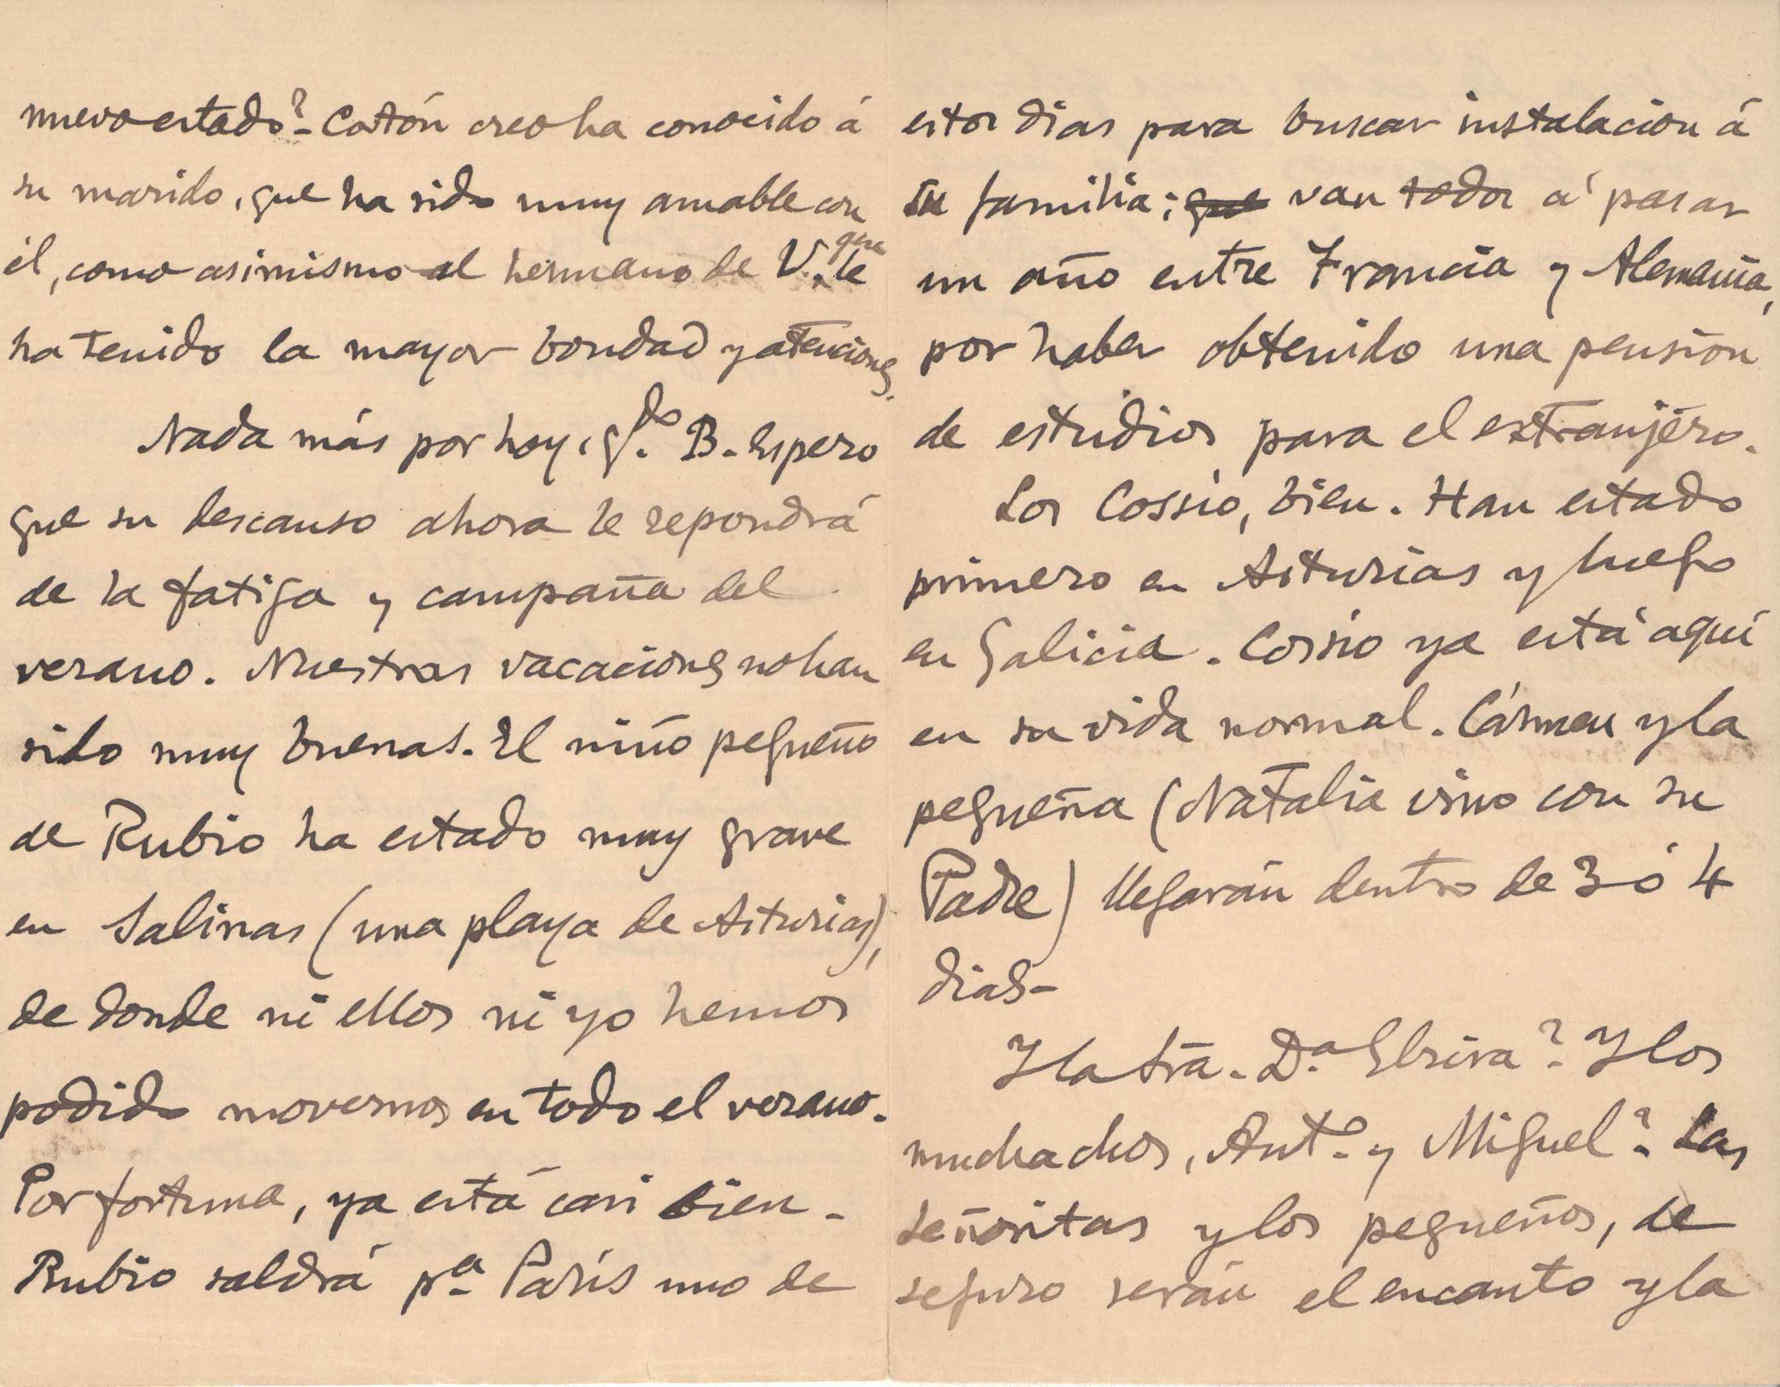 nuevo estado? Catón creo ha conocido á
su marido, que ha sido muy amable con
él, como asimismo al hermano de V. que le
ha tenido la mayor bondad y atenciones.
Nada más por hoy, q.do B. Espero
que su descanso ahora le repondrá
de la fatiga y campaña del
verano. Nuestras vacaciones no han
sido muy buenas. El niño pequeño
de Rubio ha estado muy grave
en Salinas (una playa de Asturias),
de donde ni ellos ni yo hemos
podido movernos en todo el verano.
Por fortuna, ya está casi bien -
Rubio saldrá pa París uno de
estos dias para buscar instalacion á
su familia; que van todos á pasar
un año entre Francia y Alemania,
por haber obtenido una pensión
de estudios para el extranjero.
Los Cossío, bien. Han estado
primero en Asturias y luego
en Galicia. Cossío ya está aquí
en su vida normal. Cármen y la
pequeña (Natalia vino con su
Padre) llegarán dentro de 3 ó 4
dias -
Y la Sra. D.a Elvira? Y los
muchachos, Ant.o y Miguel? Las
señoritas y los pequeños, de
seguro serán el encanto y la